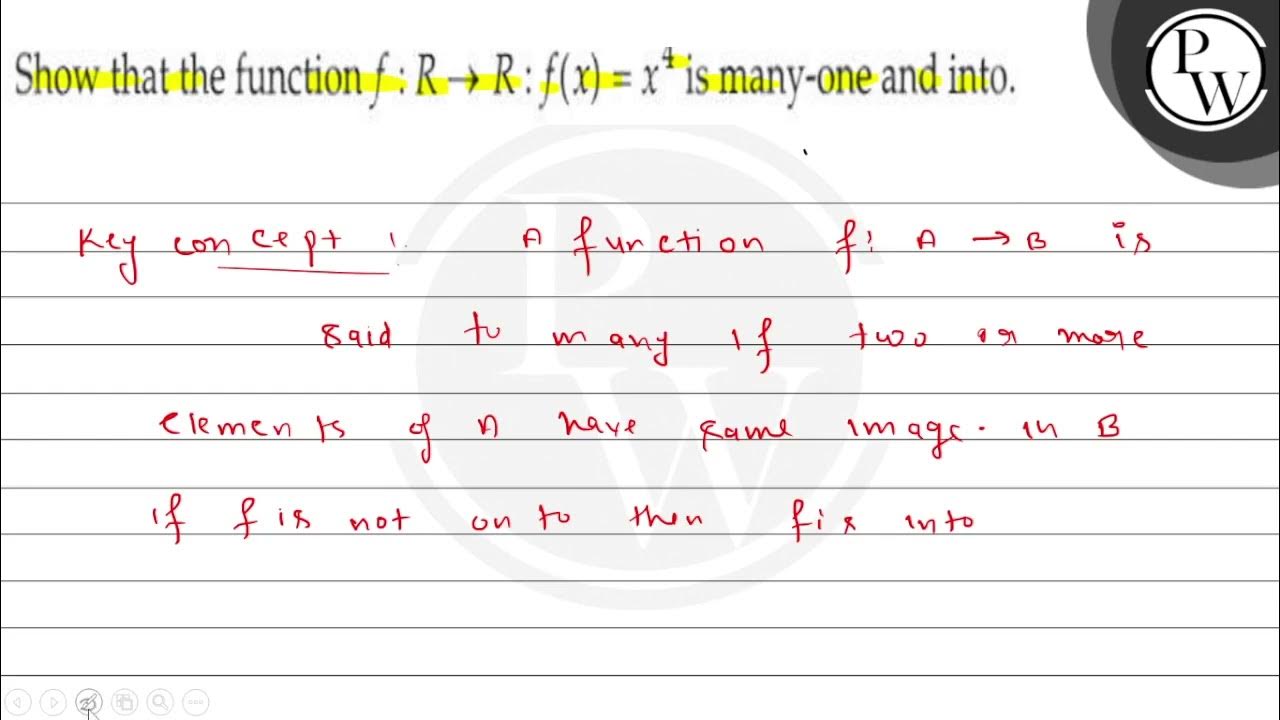 Show that the function f : R → R : f(x) = x⁴ is many-one and into.
PW
Key concept : A function f: A → B is
said to many if two or more
elements of A have same image. in B
if f is not on to then f is into
PW